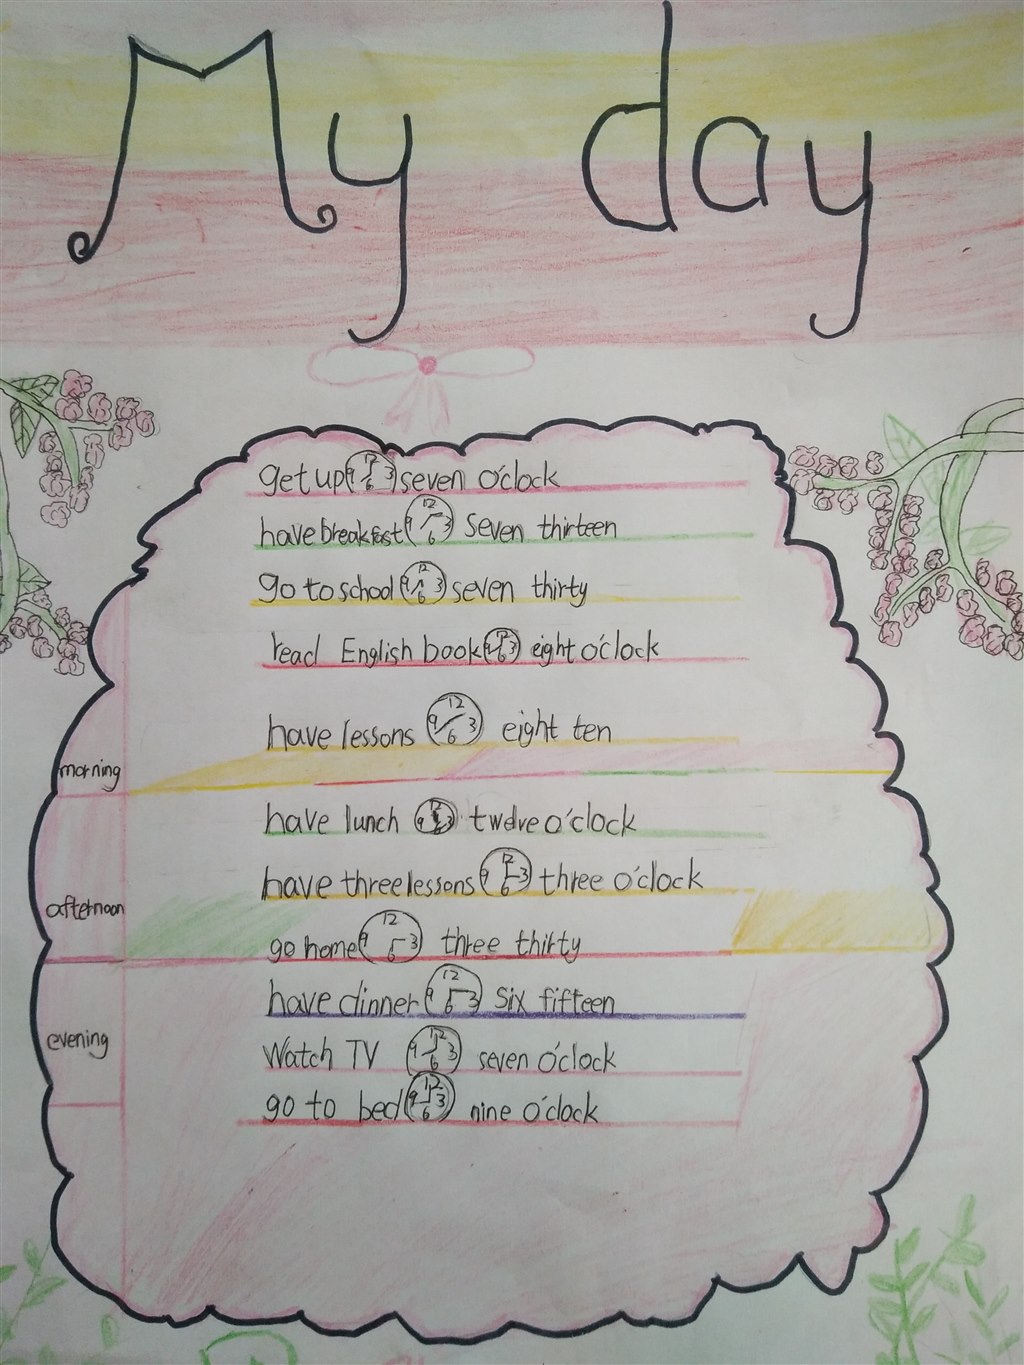 My day
get up 12 3 6 9 seven o'clock
have breakfast 12 3 6 9 seven thirteen
go to school 12 3 6 9 seven thirty
read English book 12 3 6 9 eight o'clock
have lessons 12 3 6 9 eight ten
morning
have lunch twelve o'clock
have three lessons 12 3 6 9 three o'clock
afternoon
go home 12 3 6 9 three thirty
have dinner 12 3 6 9 six fifteen
evening
Watch TV 12 3 6 9 seven o'clock
go to bed 12 3 6 9 nine o'clock